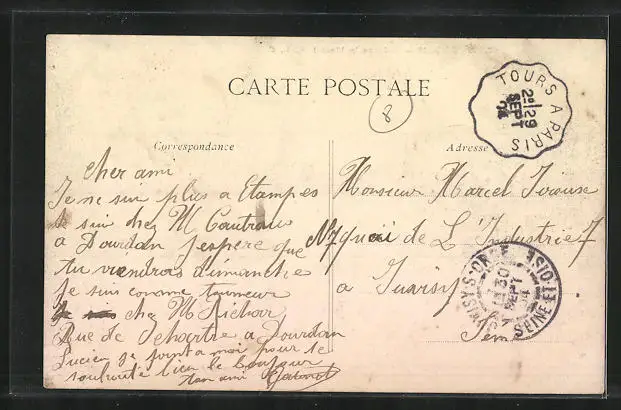 CARTE POSTALE
8
TOURS A PARIS
2º/29
SEPT
Correspondance
Adresse
Cher ami
Je ne suis plus a Etampes
Je suis chez M
a Dourdan j'espère que
tu viendras dimanche
Je suis comme tourneur
chez M
Rue de Chartre a Dourdan
Lucien se joint a moi pour te
souhaité bien le bonjour
ton ami
Monsieur Marcel
Nº7 quai de L'Industrie 7
a Juvisy
JUVISY-S-ORGE
SEINE ET OISE